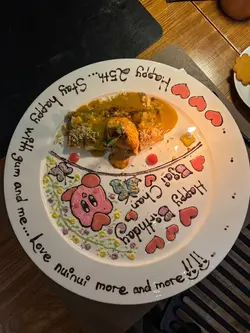 Happy 25th... Stay happy with gum and me... Love nuinui more and more !!
Happy
Birthday
Bai Chan